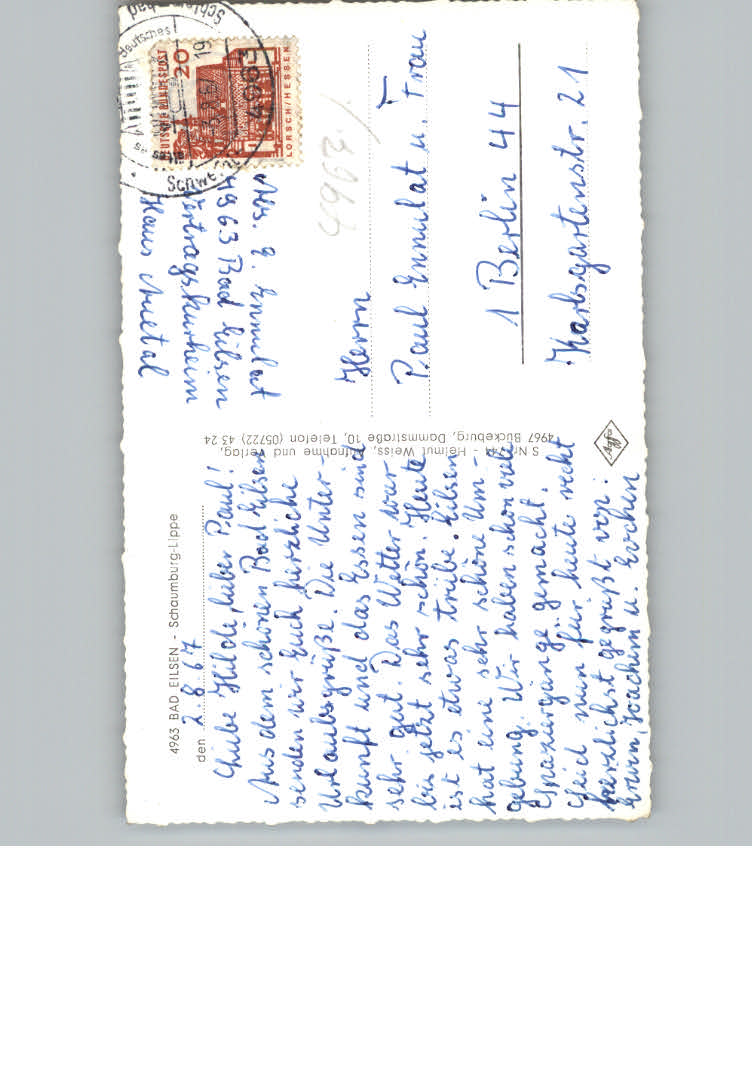 4963 BAD EILSEN - Schaumburg-Lippe
den 2.8.67
Liebe Hilde, lieber Paul!
Aus dem schönen Bad Eilsen
senden wir Euch herzliche
Urlaubsgrüße. Die Unter-
kunft und das Essen sind
sehr gut. Das Wetter war
bis jetzt sehr schön. Heute
ist es etwas trübe. Eilsen
hat eine sehr schöne Um-
gebung. Wir haben schon viele
Spaziergänge gemacht.
Seid nun für heute recht
herzlichst gegrüßt von
Erwin, Joachim u. Evchen
S Nr. - Helmut Weiss, Aufnahme und Verlag,
4967 Bückeburg, Dammstraße 10, Telefon (05722) 43 24
Agfa
Abs. E. Ennulat
4963 Bad Eilsen
Vertragskurheim
Haus
DEUTSCHE BUNDESPOST
20
LORSCH/HESSEN
deutsches
4963
4963
Herrn
Paul Ennulat u. Frau
1 Berlin 44
Karlsgartenstr. 21